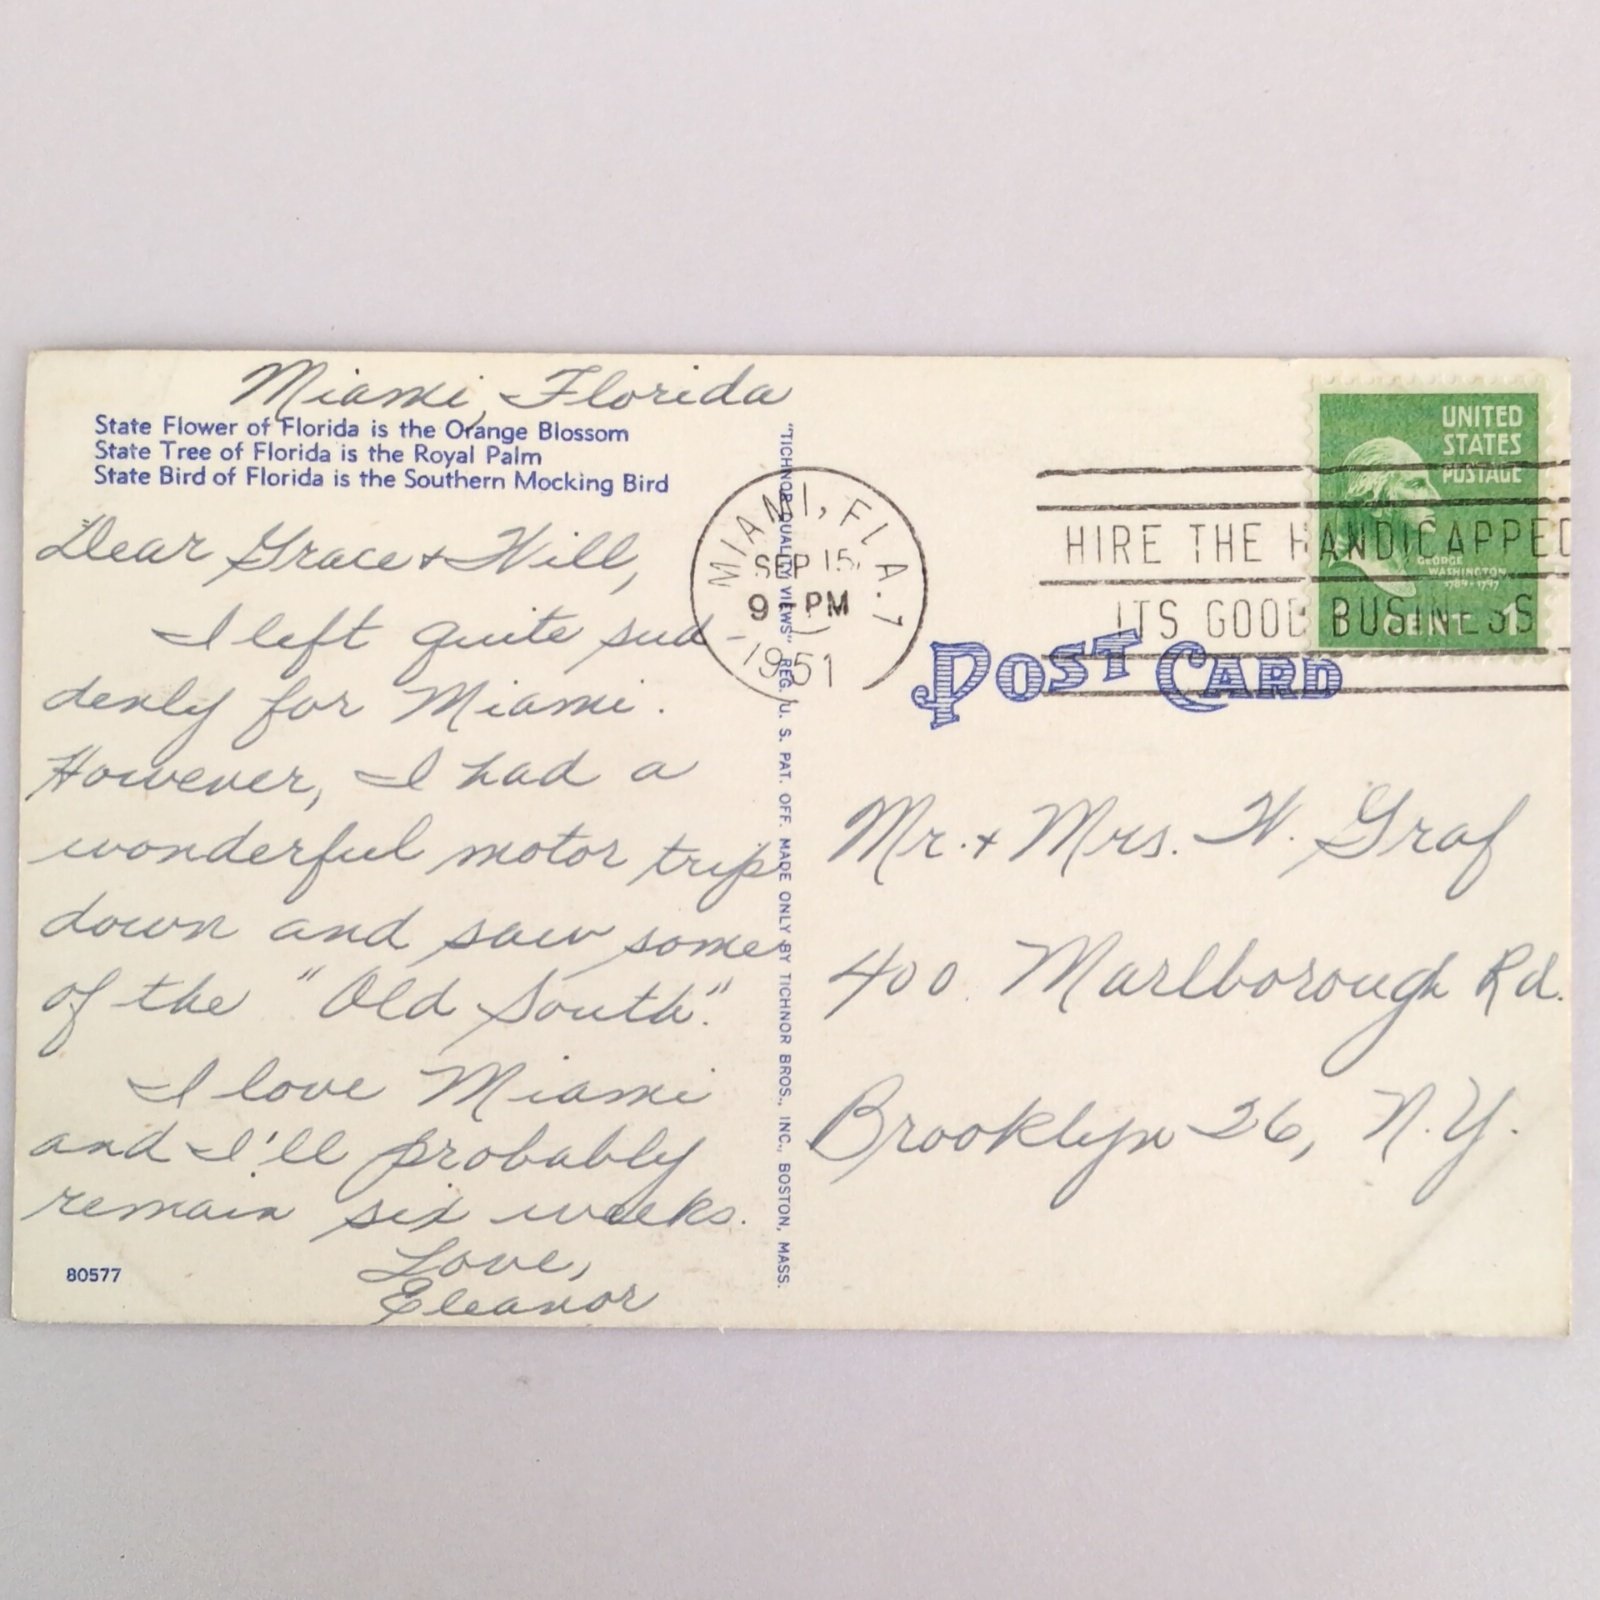 Miami, Florida
State Flower of Florida is the Orange Blossom
State Tree of Florida is the Royal Palm
State Bird of Florida is the Southern Mocking Bird
Dear Grace + Will,
I left quite sud-
denly for Miami.
However, I had a
wonderful motor trip
down and saw some
of the "Old South".
I love Miami
and I'll probably
remain six weeks.
Love,
Eleanor
80577
"TICHNOR QUALITY VIEWS" REG. U. S. PAT. OFF. MADE ONLY BY TICHNOR BROS., INC., BOSTON, MASS.
MIAMI, FLA. 7
SEP 15
9 PM
1951
HIRE THE HANDICAPPED
ITS GOOD BUSINESS
UNITED
STATES
POSTAGE
GEORGE
WASHINGTON
1789-1797
1 CENT 1
POST CARD
Mr. + Mrs. W. Graf
400 Marlborough Rd.
Brooklyn 26, N.Y.